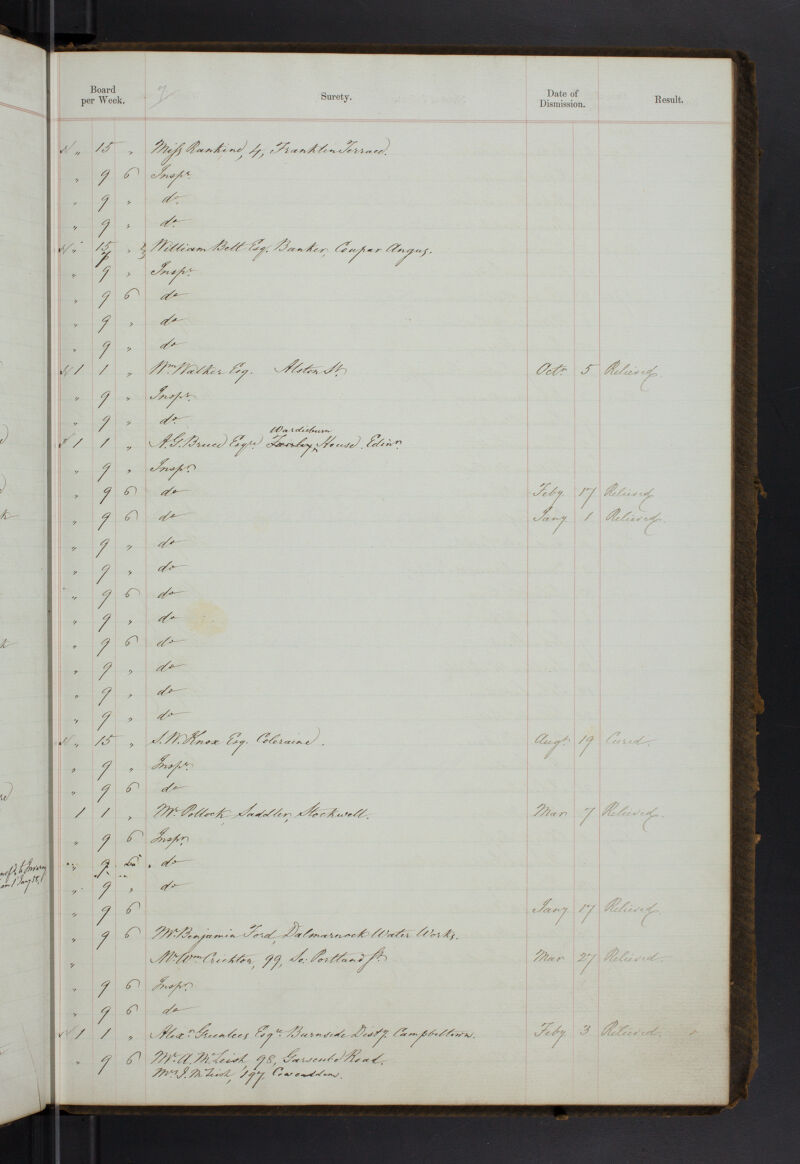 Board per Week. Surety. Date of Dismission. Result.
" 15 " Miss Rankine, 4, Franklin Terrace.
" 9 6 Inspr.
" 9 " do
" 9 " do
" 15 " William Bett Esq. Banker, Coupar Angus.
" 9 " Inspr.
" 9 6 do
" 9 " do
" 9 " do
1 1 " Wm Walker Esq. Alston St. Octr. 5 Relieved.
" 9 " Inspr.
" 9 " do
Wardieburn
1 1 " A. G. Bruce Esqre House. Edinr.
" 9 " Inspr.
" 9 6 do Feby 17 Relieved
" 9 6 do Jany 1 Relieved.
" 9 " do
" 9 " do
" 9 6 do
" 9 " do
" 9 6 do
" 9 " do
" 9 " do
" 9 " do
" 15 " S. W. Knox Esq. Coleraine. Augt. 19 Cured.
" 9 " Inspr.
" 9 6 do
1 1 " Mr. Pollock, Saddler, Stockwell. Mar 7 Relieved.
" 9 6 Inspr.
" 9 do
" 9 " do
" 9 6 Jany 17 Relieved.
" 9 6 Mr Benjamin Ford, Dalmarnock Water Works.
" Mr Wm Crichton, 99, So. Portland St. Mar 27 Relieved.
" 9 6 Inspr.
" 9 6 do
1 1 " Alexr. Greenlees Esqre. Burnside Disty. Campbeltown. Feby 3 Relieved.
" 9 6 Mr. A. McLeish, 98, Garscube Road.
Mrs J. McLeish, 197 Cowcaddens.